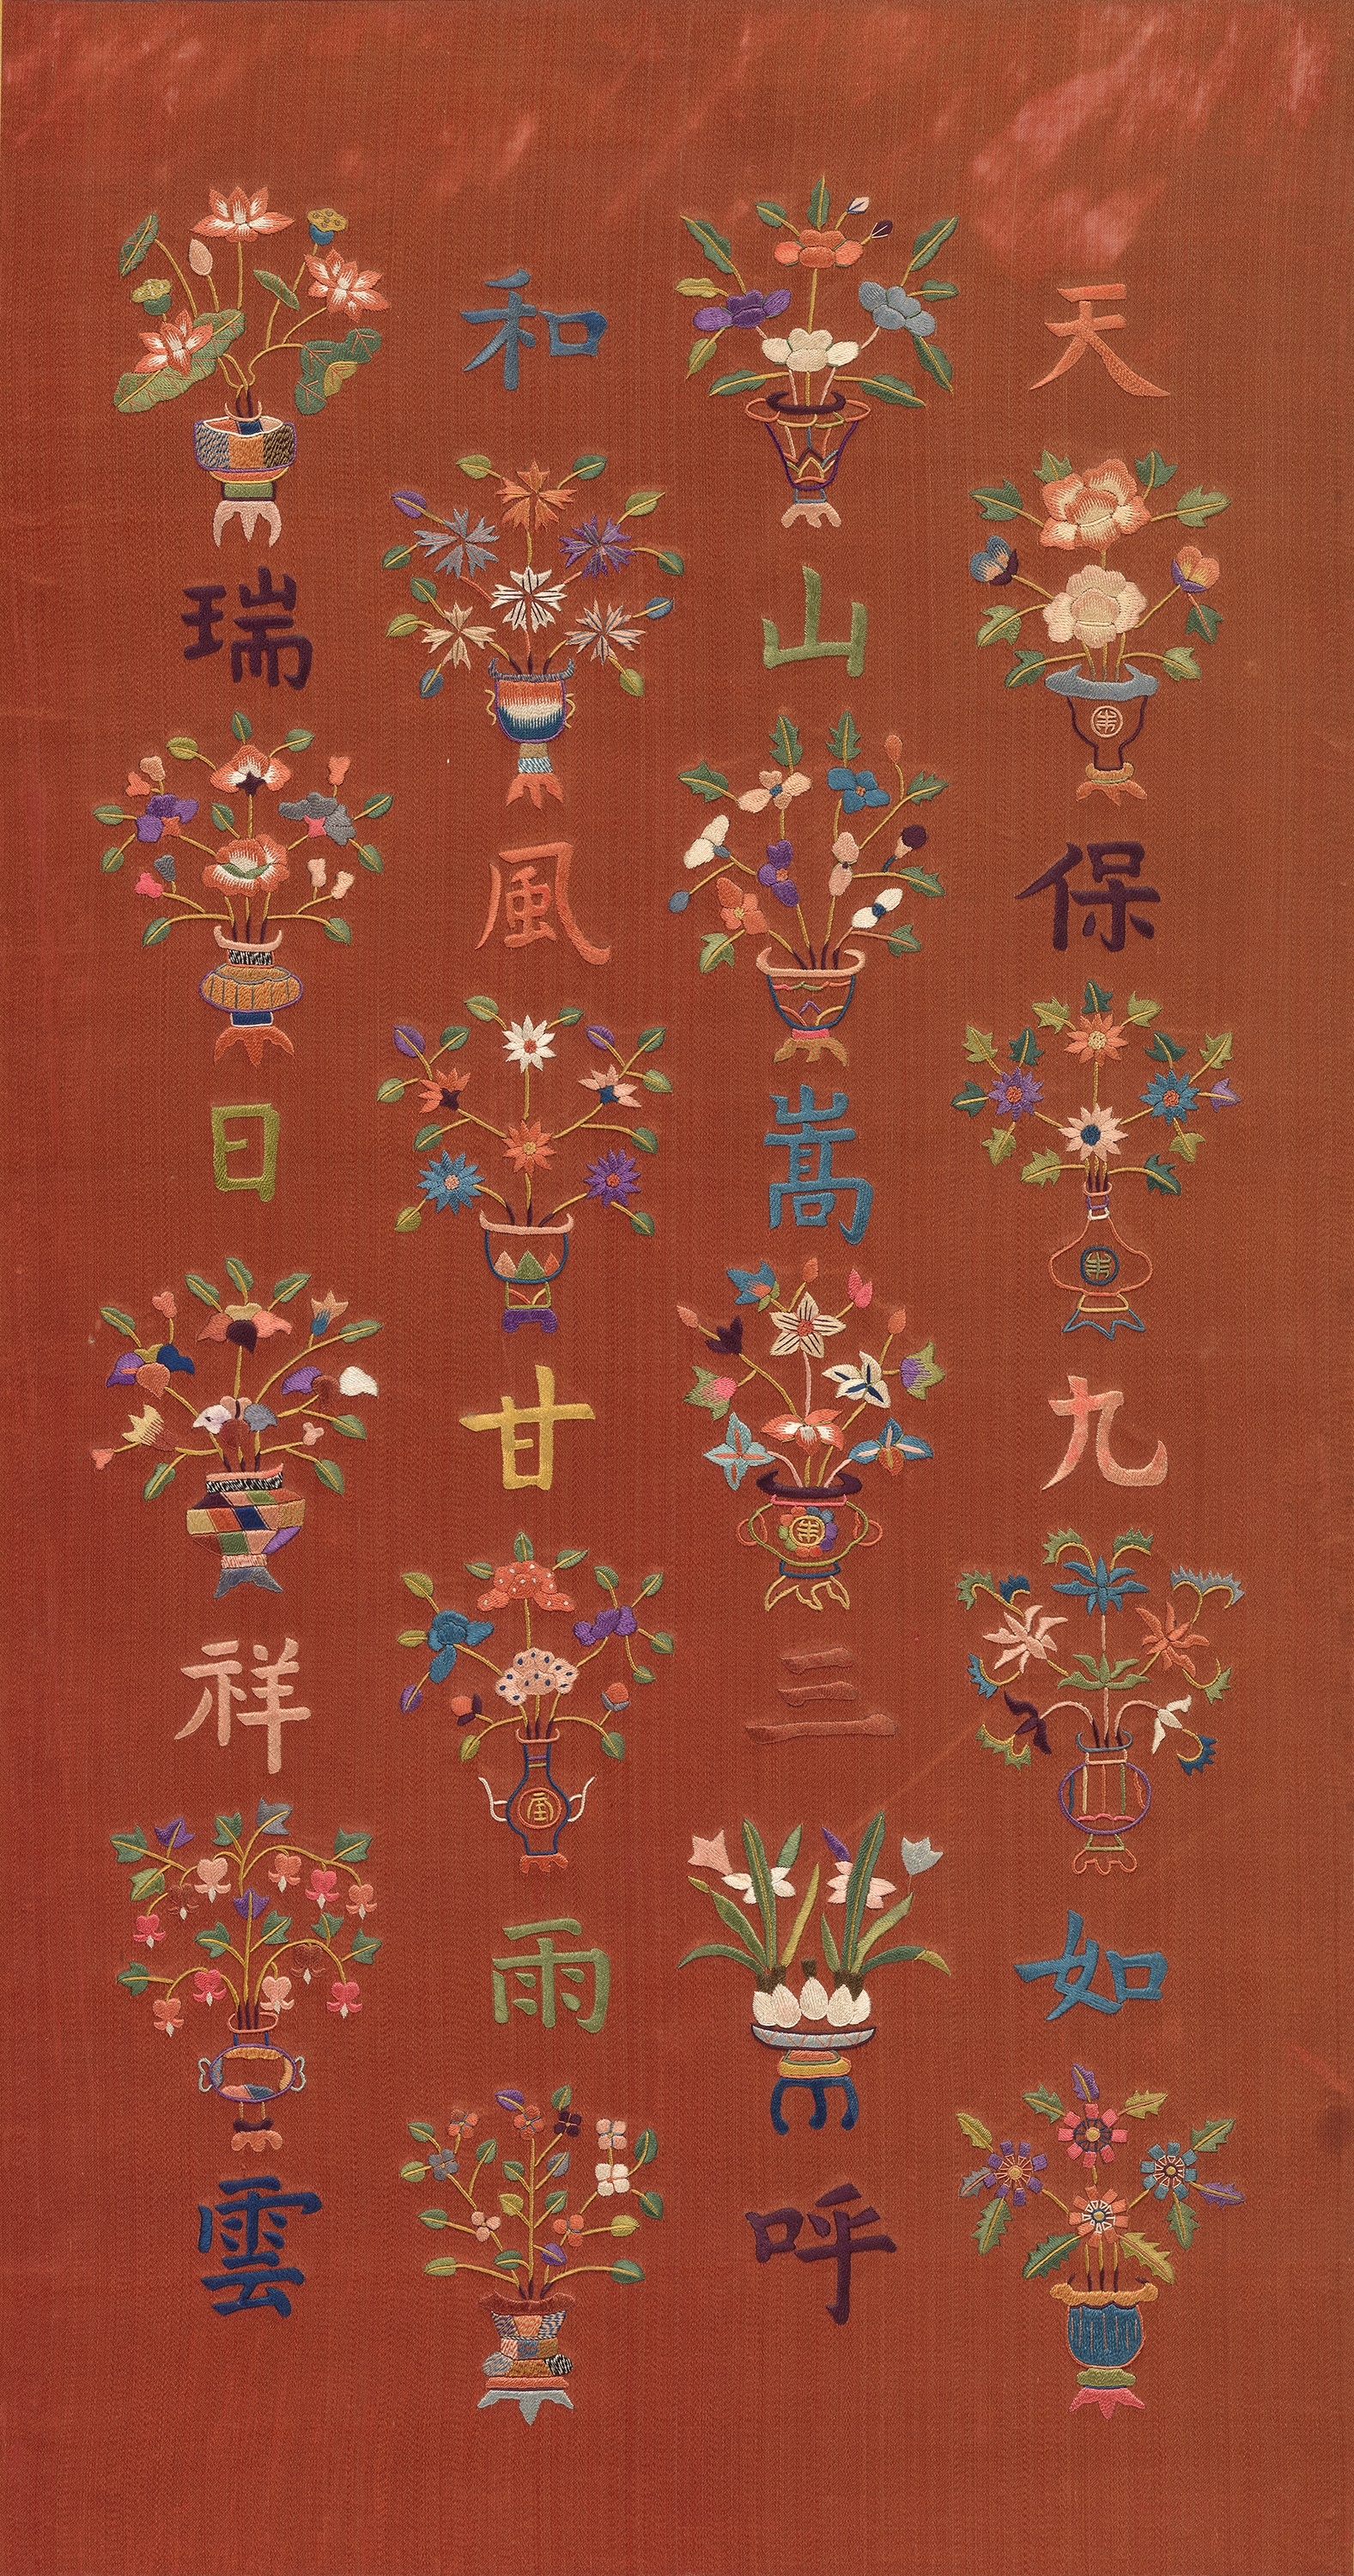 天保九如
山嵩三呼
和風甘雨
瑞日祥雲